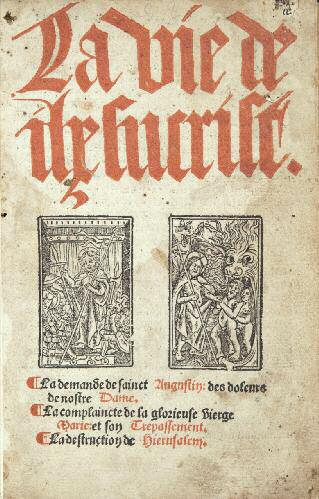 La vie de
iheſucriſt.
¶ La demande de ſainct Auguſtin: des doleurs
de noſtre Dame.
¶ La complaincte de la glorieuſe vierge
Marie: et ſon Treſpaſſement.
¶ La deſtruction de Hieruſalem.